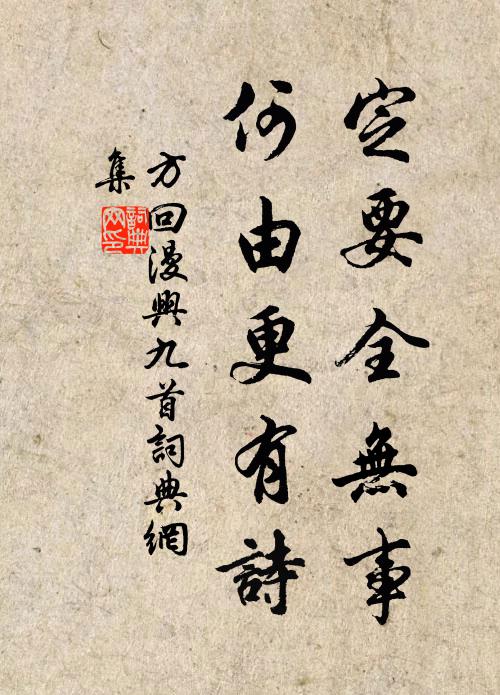 定要全無事
何由更有詩
方回漫興九首詞典網
集
詞典
网印